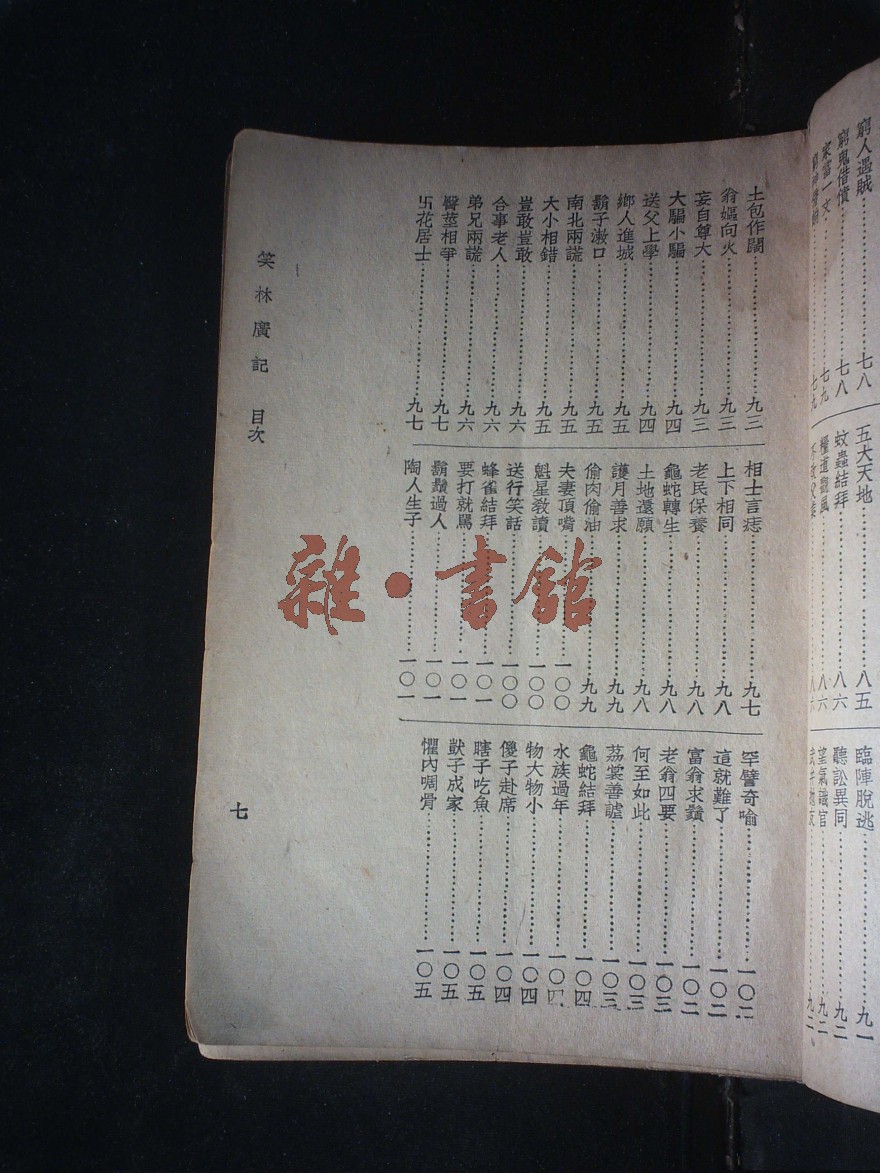 窮人遇賊……七八
窮鬼借債……七八
家當一文……七九
五大天地……八五
蚊蟲結拜……八六
糧道觀風……八六
臨陣脫逃……九一
聽訟異同……九二
望氣識官……九二
土包作闊……九三
翁嫗向火……九三
妄自尊大……九三
大騙小騙……九四
送父上學……九四
鄉人進城……九五
鬍子漱口……九五
南北兩謊……九五
大小相錯……九五
豈敢豈敢……九六
合事老人……九六
弟兄兩謊……九六
臀莖相爭……九七
五花居士……九七
相士言痣……九七
上下相同……九八
老民保養……九八
龜蛇轉生……九八
土地還願……九八
護月善求……九九
偷肉偷油……九九
夫妻頂嘴……一〇〇
魁星教讀……一〇〇
送行笑話……一〇〇
蜂雀結拜……一〇一
要打就罵……一〇一
鬍鬚過人……一〇一
陶人生子……一〇一
罕譬奇喻……一〇二
這就難了……一〇二
富翁求鬚……一〇二
老翁四要……一〇三
何至如此……一〇三
荔裳善謔……一〇三
龜蛇結拜……一〇四
水族過年……一〇四
物大物小……一〇四
傻子赴席……一〇四
瞎子吃魚……一〇五
獃子成家……一〇五
懼內啁骨……一〇五
笑林廣記 目次
七
雜·書館